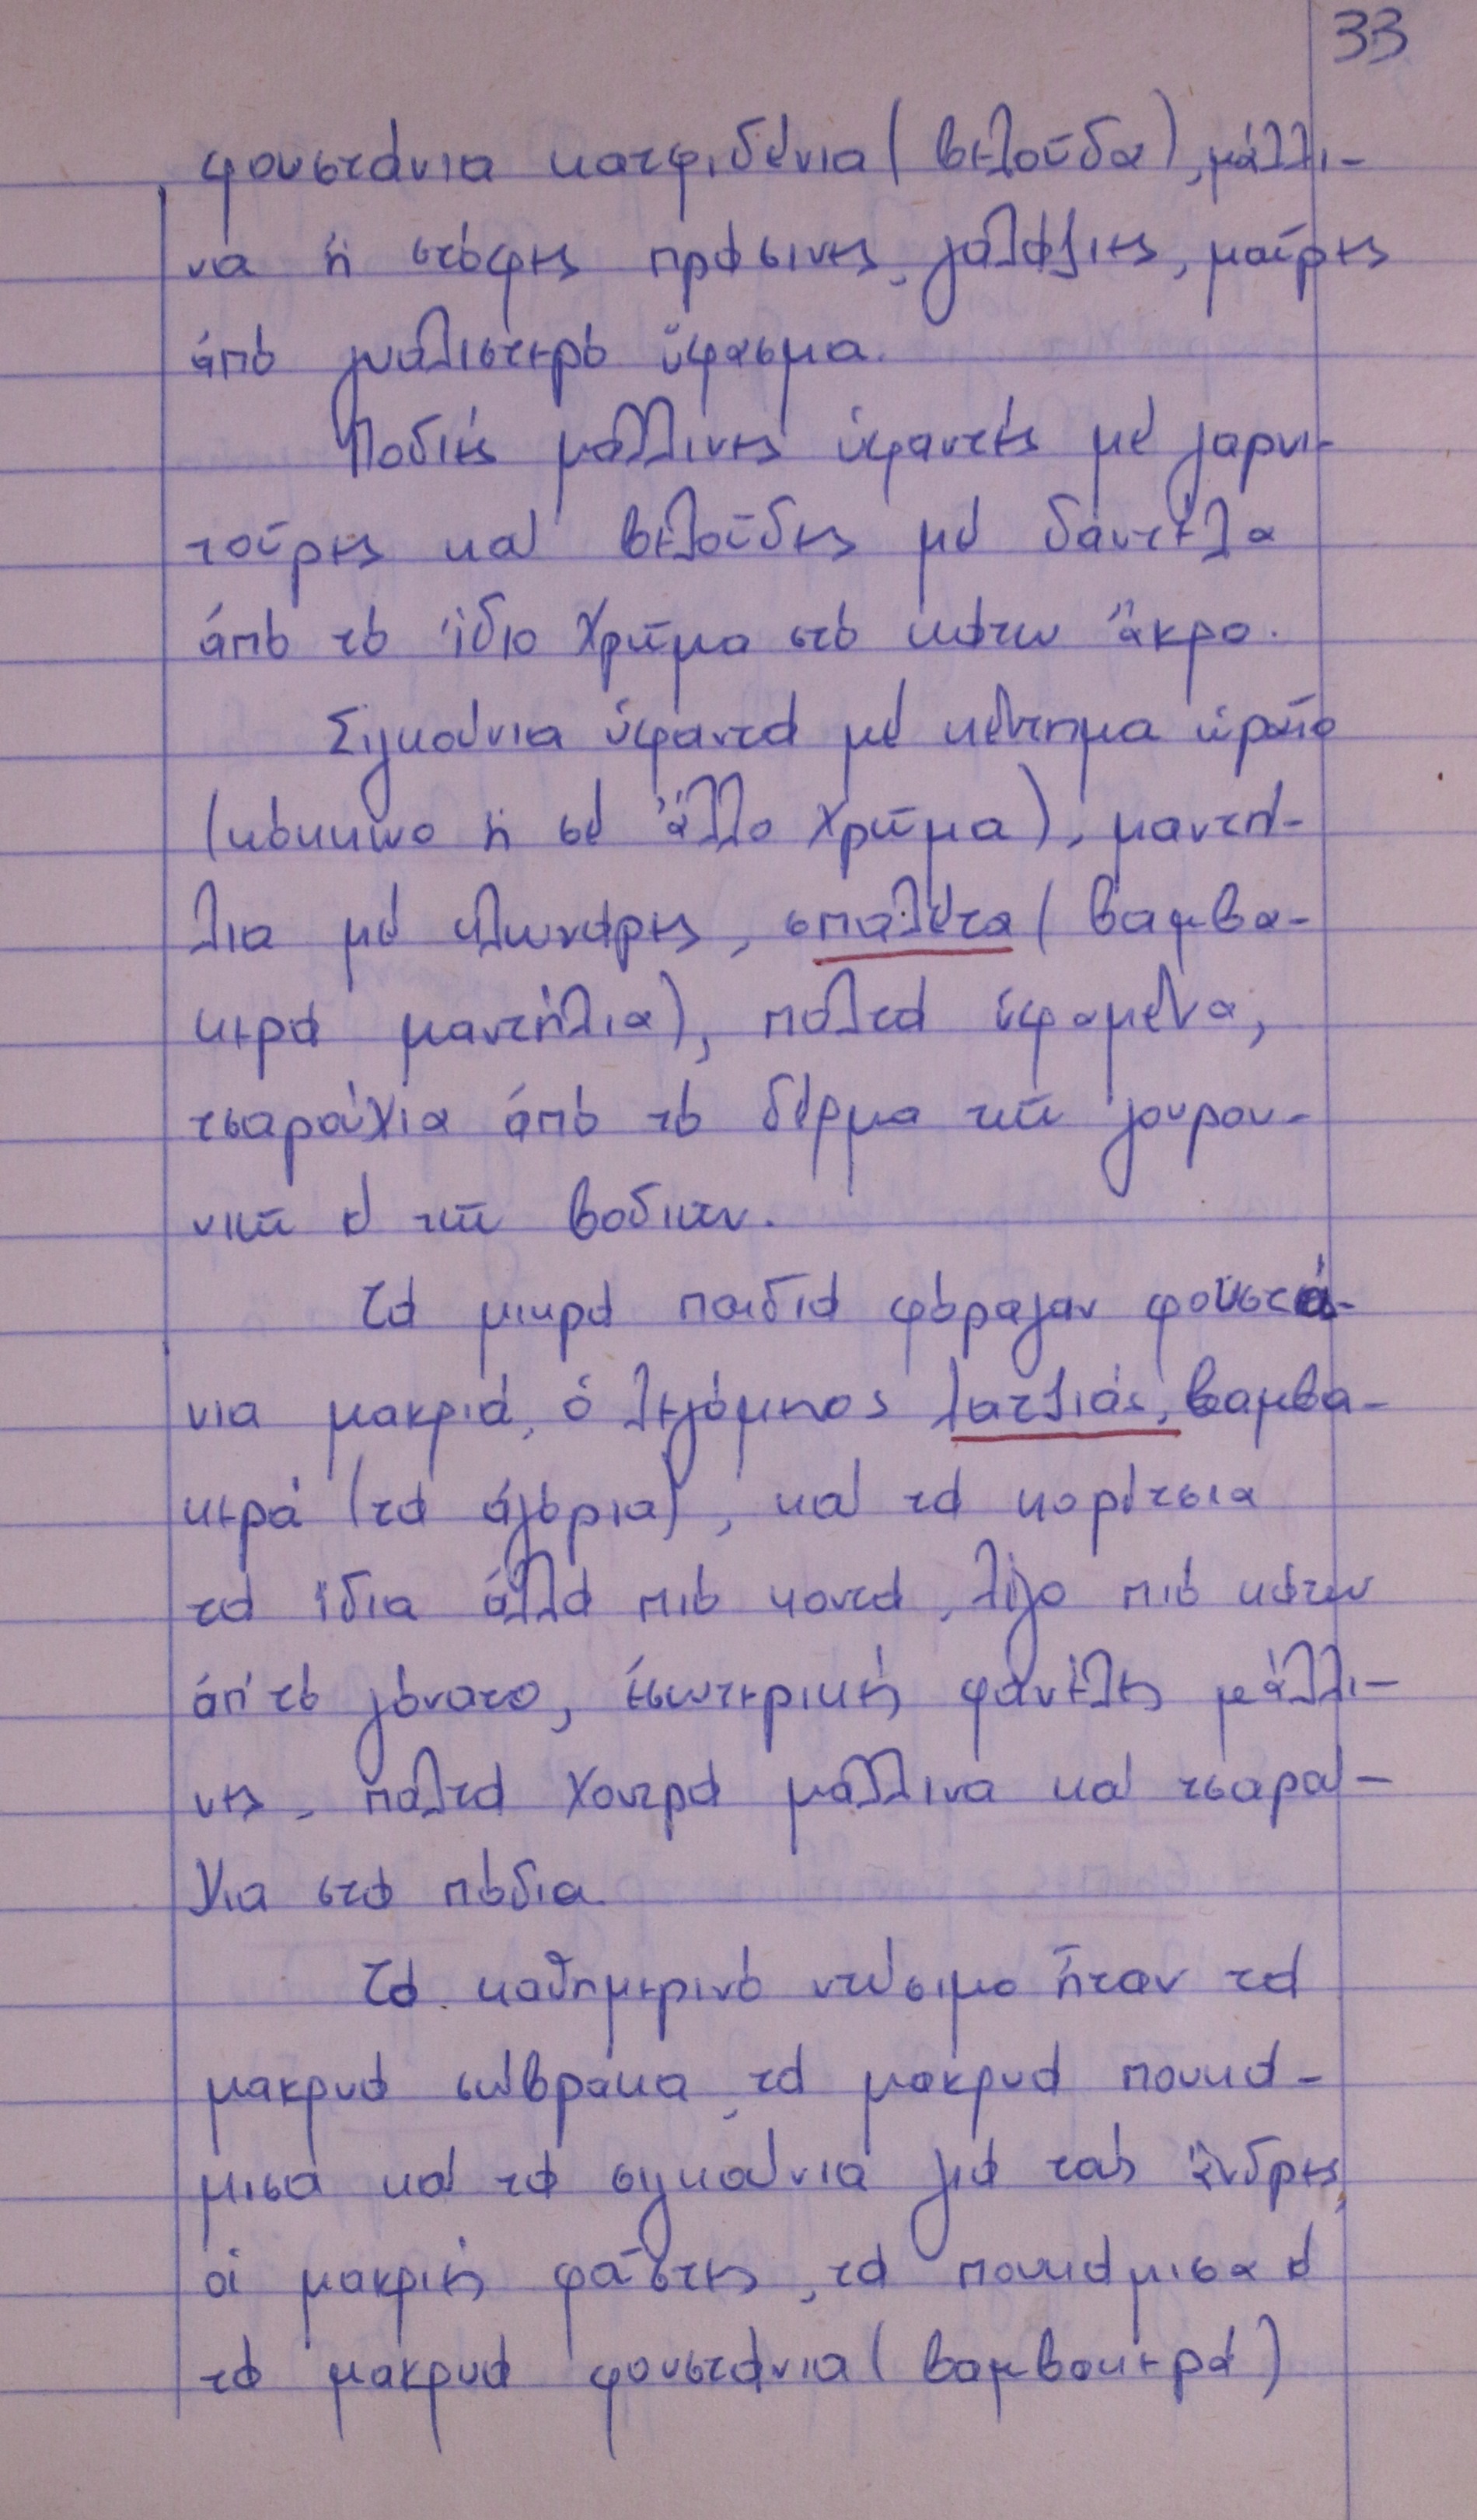 33
φουστάνια κατφιδένια (βελούδα), μάλλι-
να ἤ στόφες πράσινες, γαλάζιες, μαῦρες
ἀπό γυαλιστερό ὕφασμα.
Ποδιές μάλλινες ὑφαντές μέ γαρνι-
τοῦρες καί βελοῦδες μέ δαντέλα
ἀπό τό ἴδιο χρῶμα στό κάτω ἄκρο.
Σιγκούνια ὑφαντά μέ κέντημα ὡραῖο
(κόκκινο ἤ σέ ἄλλο χρῶμα), μαντή-
λια μέ κλωνάρες, σπαλέτα (βαμβα-
κερά μαντήλια), παλτά ὑφαμένα,
τσαρούχια ἀπό τό δέρμα τῶν γουρου-
νιῶν κ' τῶν βοδιῶν.
Τά μικρά παιδιά φόραγαν φουστά-
νια μακριά, ὁ λεγόμενος λατζιάς, βαμβα-
κερά (τά ἀγόρια), καί τά κορίτσια
τά ἴδια ἀλλά πιό κοντά, λίγο πιό κάτω
ἀπ' τό γόνατο, ἐσωτερικές φανέλες μάλλι-
νες, παλτά χοντρά μάλλινα καί τσαρού-
χια στά πόδια.
Τό καθημερινό ντύσιμο ἦταν τά
μακρυά σώβρακα, τά μακρυά πουκά-
μισα καί τά σιγκούνια γιά τούς ἄνδρες,
οἱ μακριές φοῦστες, τά πουκάμισα κ'
τά μακρυά φουστάνια (βαμβακερά)